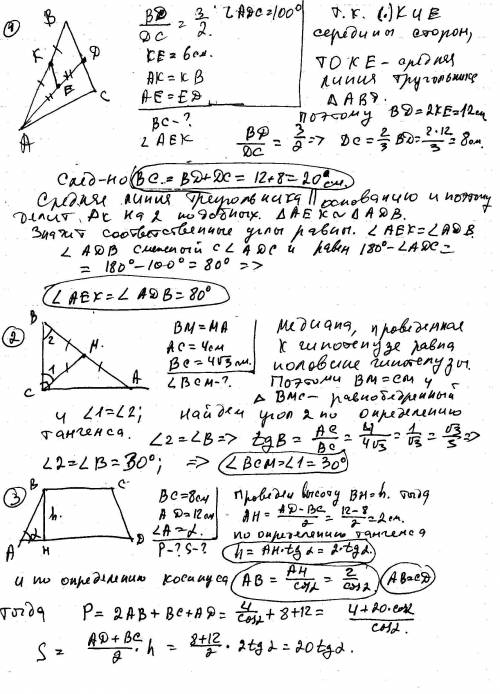 1
B
K
D
E
C
A
BD/DC = 3/2. ∠ADC=100°
KE=6см.
AK=KB
AE=ED
BC-?
∠AEK
Т.К. (·) К и Е
середины сторон,
ТО КЕ-средняя
линия треугольника
ΔABD.
Поэтому BD=2KE=12см
BD/DC = 3/2 => DC = 2/3 BD = 2·12/3 = 8см.
След-но BC = BD+DC = 12+8 = 20см.
Средняя линия треугольника || основанию и поэтому
делит Δк на 2 подобных. ΔAEK ~ ΔADB.
Значит соответственные углы равны. ∠AEK=∠ADB.
∠ADB смежный с ∠ADC и равен 180°-∠ADC=
= 180°-100° = 80° =>
∠AEK = ∠ADB = 80°
2
B
2
M.
1
C
A
BM=MA
AC=4см
BC=4√3см.
∠BCM-?
Медиана, проведенная
к гипотенузе равна
половине гипотенузы.
Поэтому BM=CM и
Δ BMC- равнобедренный
и ∠1=∠2; найдем угол 2 по определению
тангенса. ∠2=∠B => tgB = AC/BC = 4/4√3 = 1/√3 = √3/3 =>
∠2=∠B=30°; => ∠BCM=∠1=30°
3
B
C
h.
α
A
H
D
BC=8см
AD=12см
∠A=α.
P-? S-?
Проведем высоту BH=h. тогда
AH = AD-BC/2 = 12-8/2 = 2см.
по определению тангенса
h = AH·tgα = 2·tgα
и по определению косинуса AB = AH/cosα = 2/cosα AB=CD
тогда P = 2AB+BC+AD = 4/cosα + 8+12 = 4+20·cosα/cosα.
S = AD+BC/2 · h = 8+12/2 · 2tgα = 20tgα.